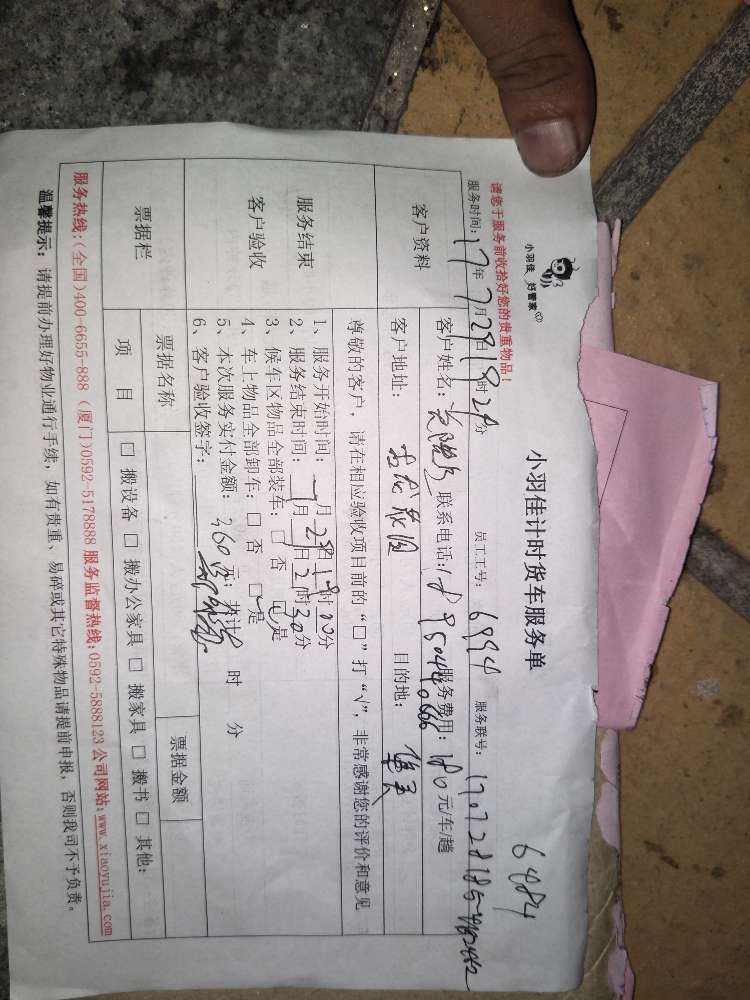 小羽佳 好管家
6484
小羽佳计时货车服务单
请您于服务前收拾好您的贵重物品！
服务时间：17年7月29日19时29分 员工工号：6994 服务联号：
客户资料 客户姓名： 联系电话： 服务费用：180元/车/趟
客户地址： 目的地：集美
尊敬的客户，请在相应验收项目前的“□”打“√”，非常感谢您的评价和意见
服务结束
客户验收
1、服务开始时间：
2、服务结束时间：
3、候车区物品全部装车：□ 否 □是
4、车上物品全部卸车：□ 否 □是
5、本次服务实付金额：360元；共计 时 分
6、客户验收签字：
票据栏 票据名称 票据金额
项 目 □ 搬设备 □ 搬办公家具 □ 搬家具 □ 搬书 □ 其他：
服务热线：(全国)400-6655-888 (厦门)0592-5178888 服务监督热线：0592-5888123 公司网站：www.xiaoyujia.com
温馨提示：请提前办理好物业通行手续，如有贵重、易碎或其它特殊物品请提前申报，否则我司不予负责。